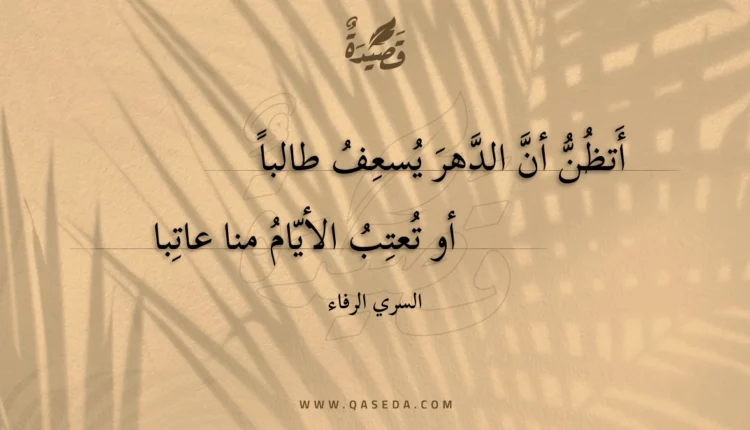 قَصِيدَةٌ
أَتظُنُّ أنَّ الدَّهرَ يُسعِفُ طالباً
أو تُعتِبُ الأيّامُ منا عاتِبا
السري الرفاء
WWW.QASEDA.COM